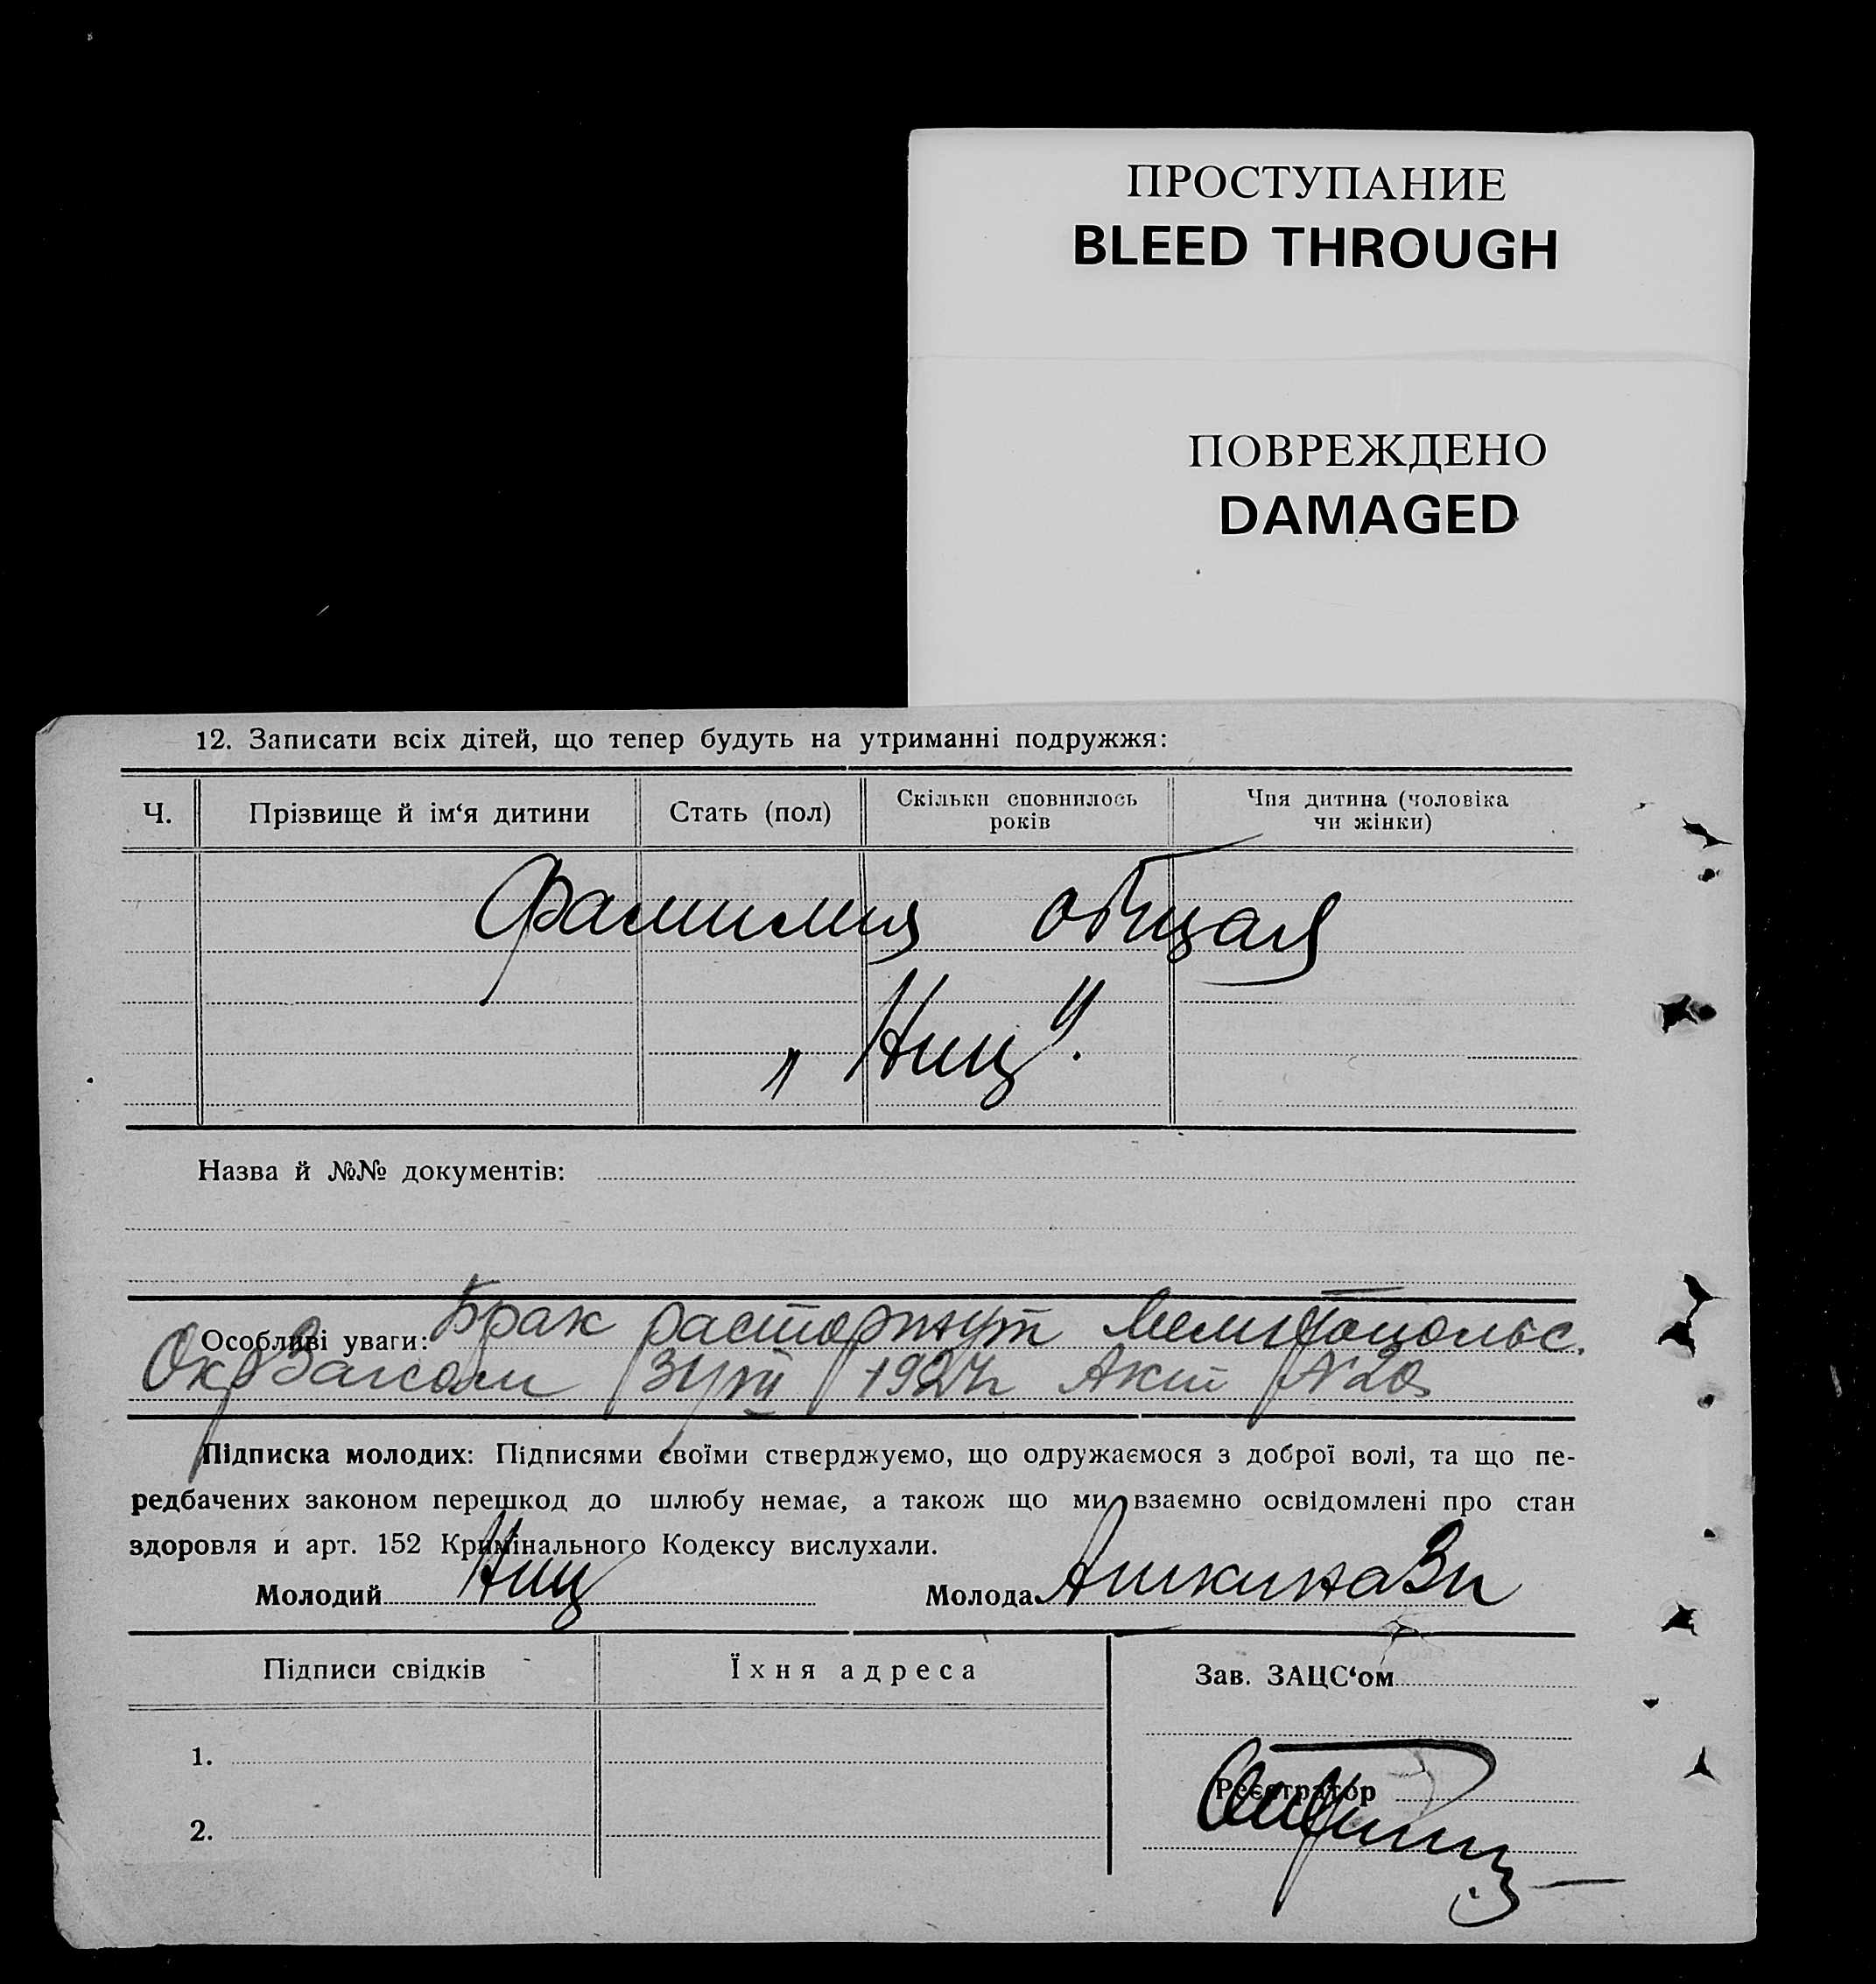 ПРОСТУПАНИЕ
BLEED THROUGH
ПОВРЕЖДЕНО
DAMAGED
12. Записати всіх дітей, що тепер будуть на утриманні подружжя:
Ч. Прізвище й ім‘я дитини Стать (пол) Скільки сповнилось років Чия дитина (чоловіка чи жінки)
Фамилия общая
„Ниц".
Назва й №№ документів:
Особливі уваги: Брак расторгнут Мелитопольс.
Окр Загсом 1927г Акт N 20
Підписка молодих: Підписями своїми стверджуємо, що одружаємося з доброї волі, та що пе-
редбачених законом перешкод до шлюбу немає, а також що ми взаємно освідомлені про стан
здоровля и арт. 152 Кримінального Кодексу вислухали.
Молодий Ниц Молода
Підписи свідків Їхня адреса Зав. ЗАЦС‘ом
1.
Реєстратор
2.